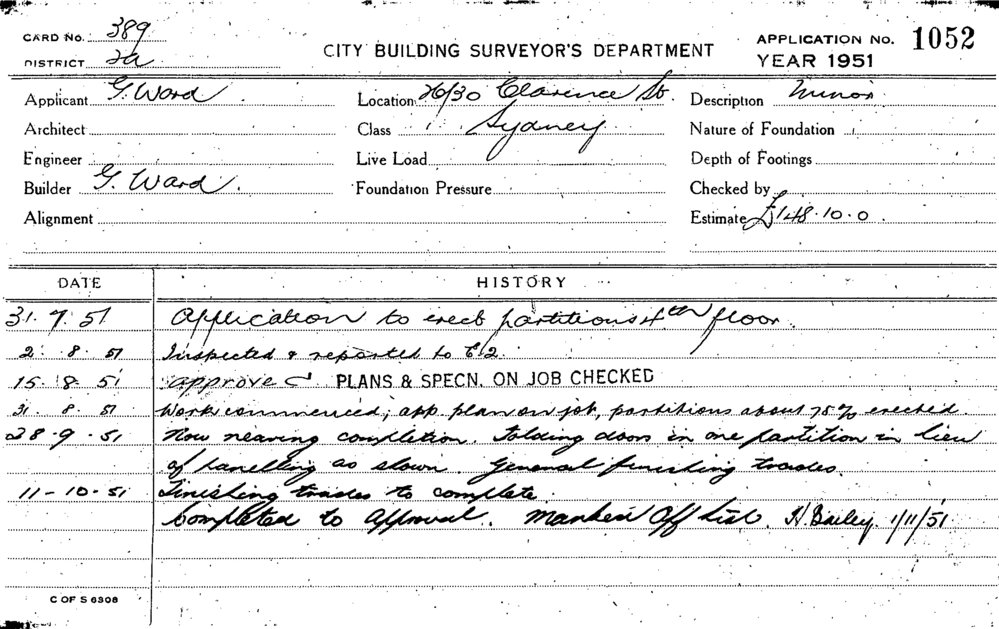 CARD No. 389
DISTRICT 2a
CITY BUILDING SURVEYOR'S DEPARTMENT
APPLICATION No. 1052
YEAR 1951
Applicant G. Ward
Location 26/30 Clarence St.
Description Minor
Architect
Class Sydney
Nature of Foundation
Engineer
Live Load
Depth of Footings
Builder G. Ward.
Foundation Pressure
Checked by
Alignment
Estimate £148.10.0.
DATE HISTORY
31.7.51 Application to erect partitions 4th floor.
2.8.51 Inspected & reported to
15.8.51 approved PLANS & SPECN. ON JOB CHECKED
31.8.51 Work commenced, app. plan on job, partitions about 75% erected.
28.9.51 Now nearing completion. Folding doors in one partition in lieu
of panelling as shown. General finishing trades.
11-10-51 Finishing trades to complete
Completed to Approval. Marked Off List. H Bailey. 1/11/51
C OF S 6306